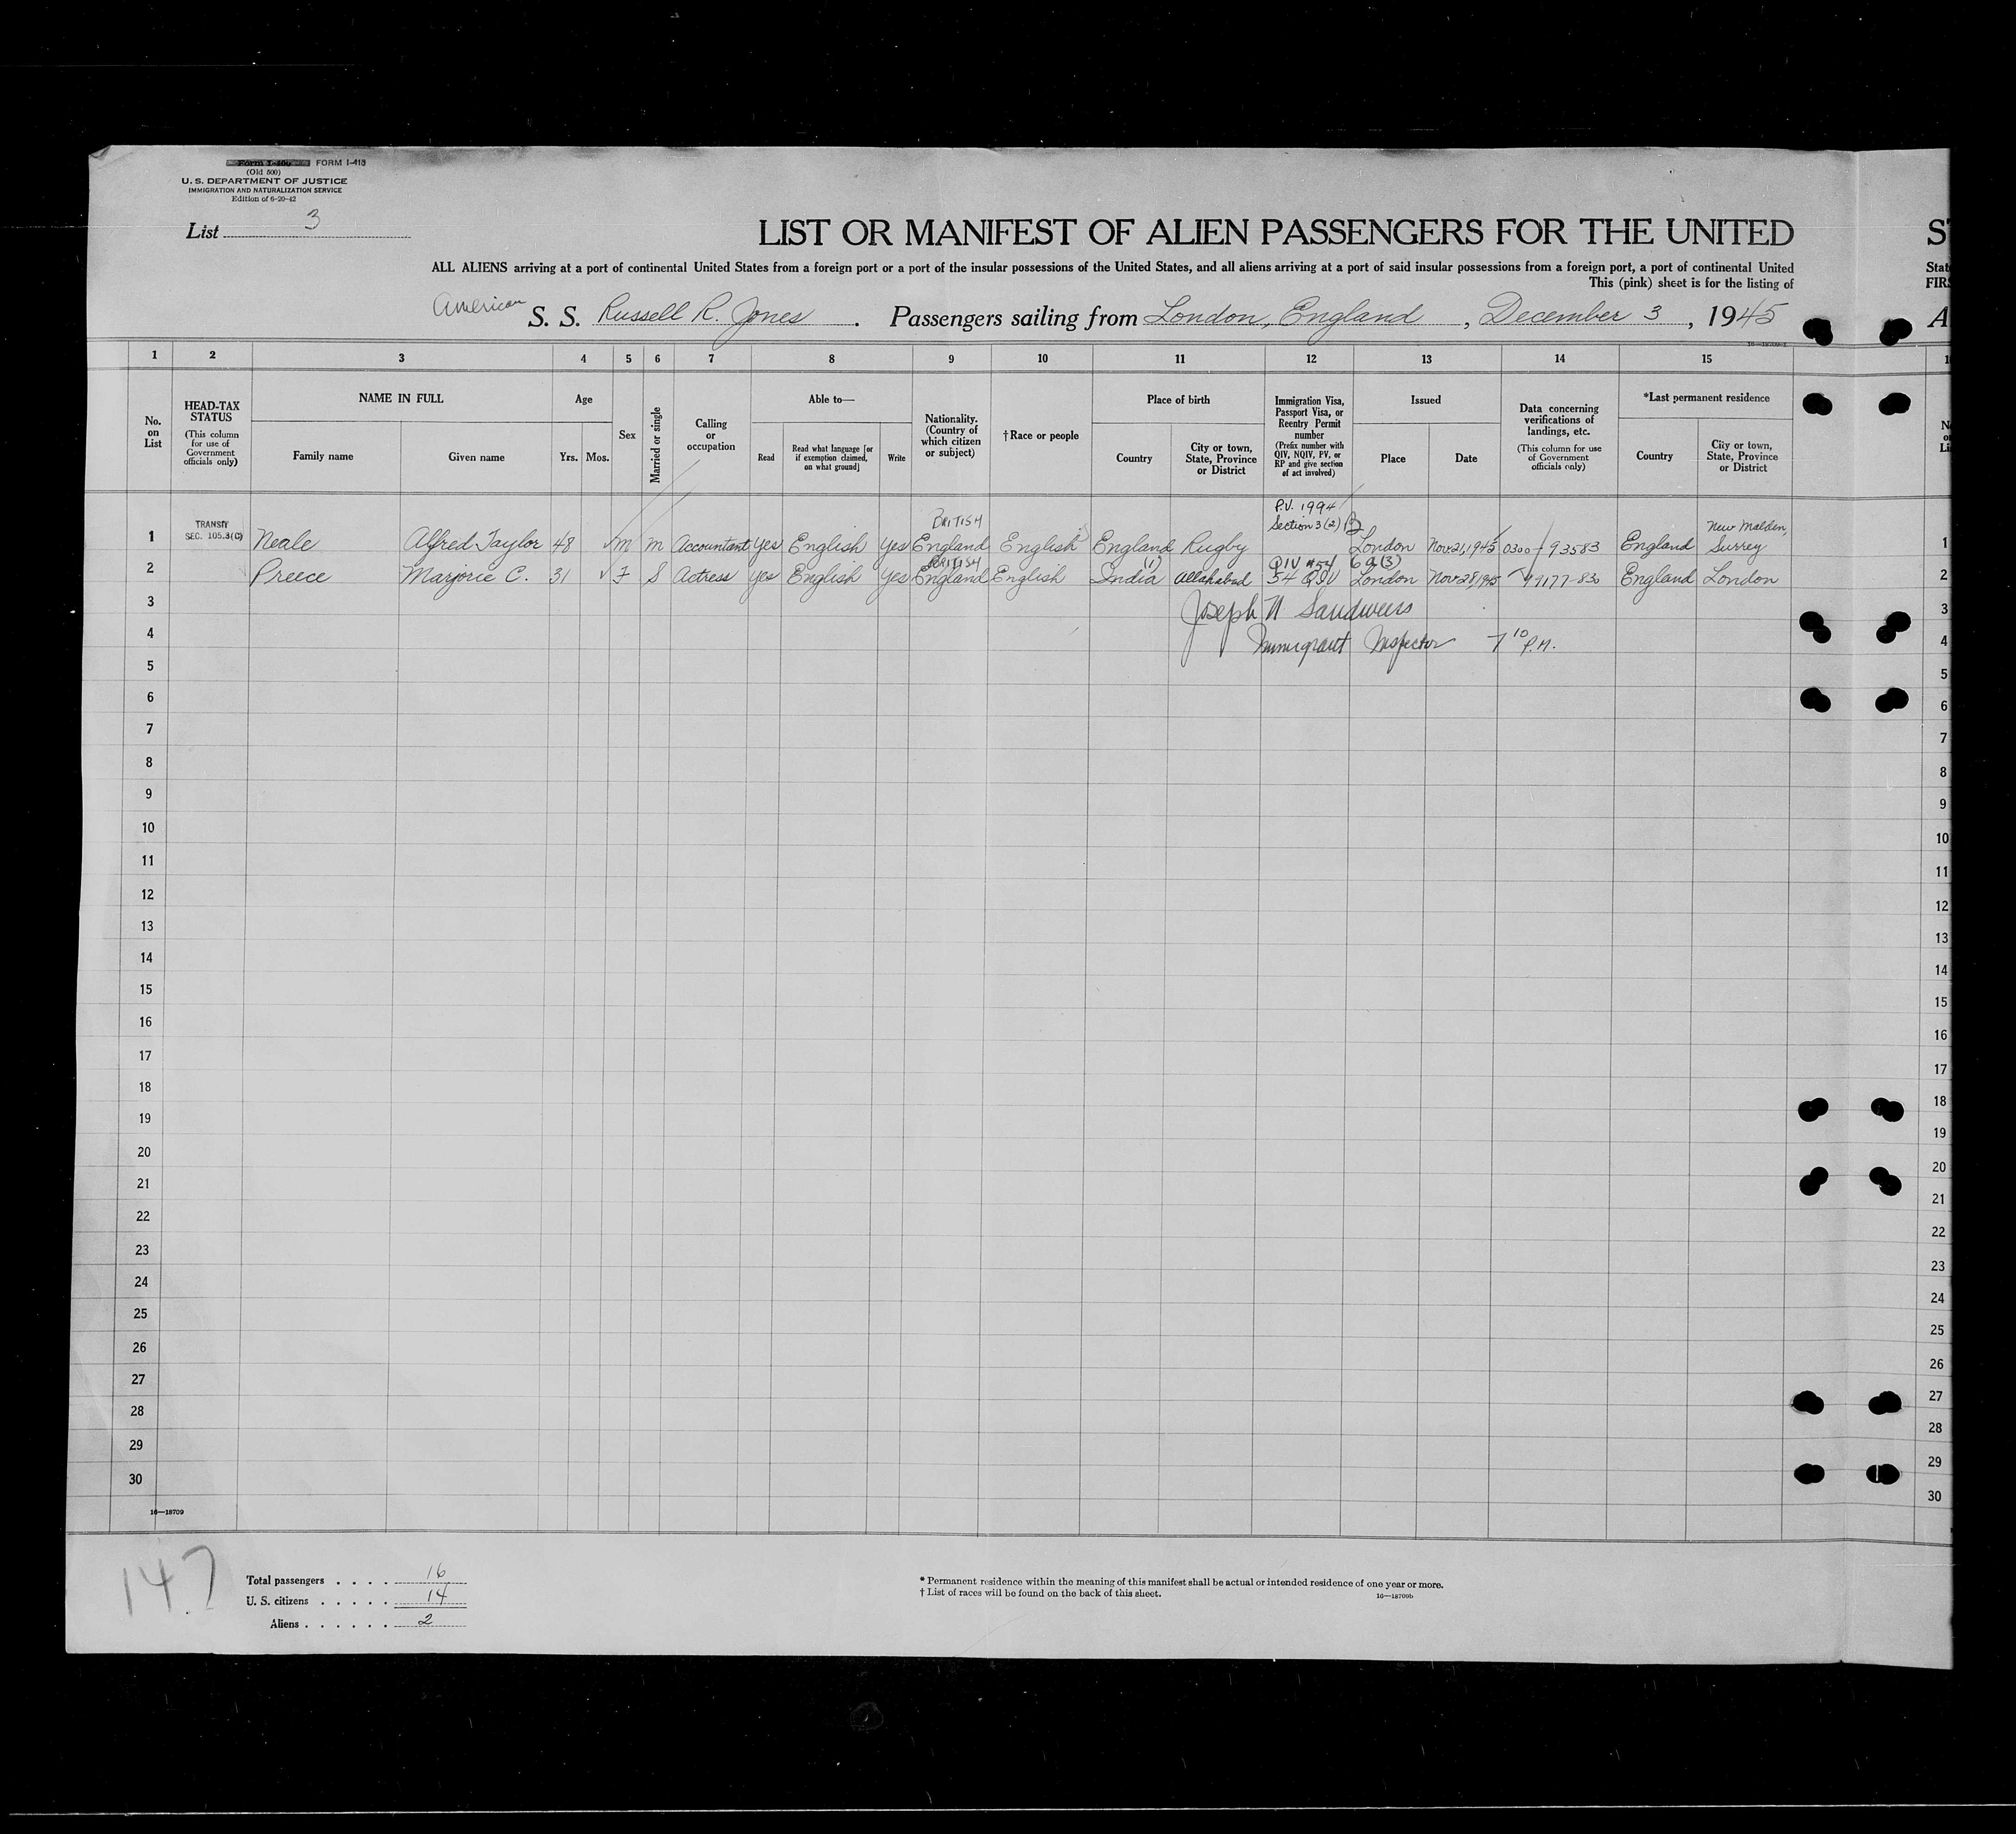 Form I-400 FORM I-415
(Old 500)
U. S. DEPARTMENT OF JUSTICE
IMMIGRATION AND NATURALIZATION SERVICE
Edition of 6-20-42
List 3
LIST OR MANIFEST OF ALIEN PASSENGERS FOR THE UNITED
ALL ALIENS arriving at a port of continental United States from a foreign port or a port of the insular possessions of the United States, and all aliens arriving at a port of said insular possessions from a foreign port, a port of continental United
This (pink) sheet is for the listing of
American S. S. Russell R. Jones . Passengers sailing from London, England , December 3 , 1945
1 2 3 4 5 6 7 8 9 10 11 12 13 14 15
No. on List
HEAD-TAX STATUS
(This column for use of Government officials only)
NAME IN FULL
Family name
Given name
Age
Yrs. Mos.
Sex
Married or single
Calling or occupation
Able to—
Read
Read what language [or if exemption claimed, on what ground]
Write
Nationality. (Country of which citizen or subject)
†Race or people
Place of birth
Country
City or town, State, Province or District
Immigration Visa, Passport Visa, or Reentry Permit number
(Prefix number with QIV, NQIV, PV, or RP and give section of act involved)
Issued
Place
Date
Data concerning verifications of landings, etc.
(This column for use of Government officials only)
*Last permanent residence
Country
City or town, State, Province or District
TRANSIT BRITISH P.V. 1994 New Malden,
1 SEC. 105.3(C) Neale Alfred Taylor 48 M M Accountant Yes English Yes England English England Rugby Section 3(2) London Nov. 21, 1945 0300-93583 England Surrey 1
BRITISH (1) QIV #54 6a(3)
2 Preece Marjorie C. 31 F S Actress Yes English Yes England English India Allahabad 54 QIV London Nov 28, 1945 99177-830 England London 2
3 Joseph N Sandweiss 3
4 Immigrant Inspector 7 10 P.M. 4
5 5
6 6
7 7
8 8
9 9
10 10
11 11
12 12
13 13
14 14
15 15
16 16
17 17
18 18
19 19
20 20
21 21
22 22
23 23
24 24
25 25
26 26
27 27
28 28
29 29
30 30
16—18709
147
Total passengers . . . . 16
U. S. citizens . . . . . 14
Aliens . . . . . . 2
* Permanent residence within the meaning of this manifest shall be actual or intended residence of one year or more.
† List of races will be found on the back of this sheet.
16—18709b